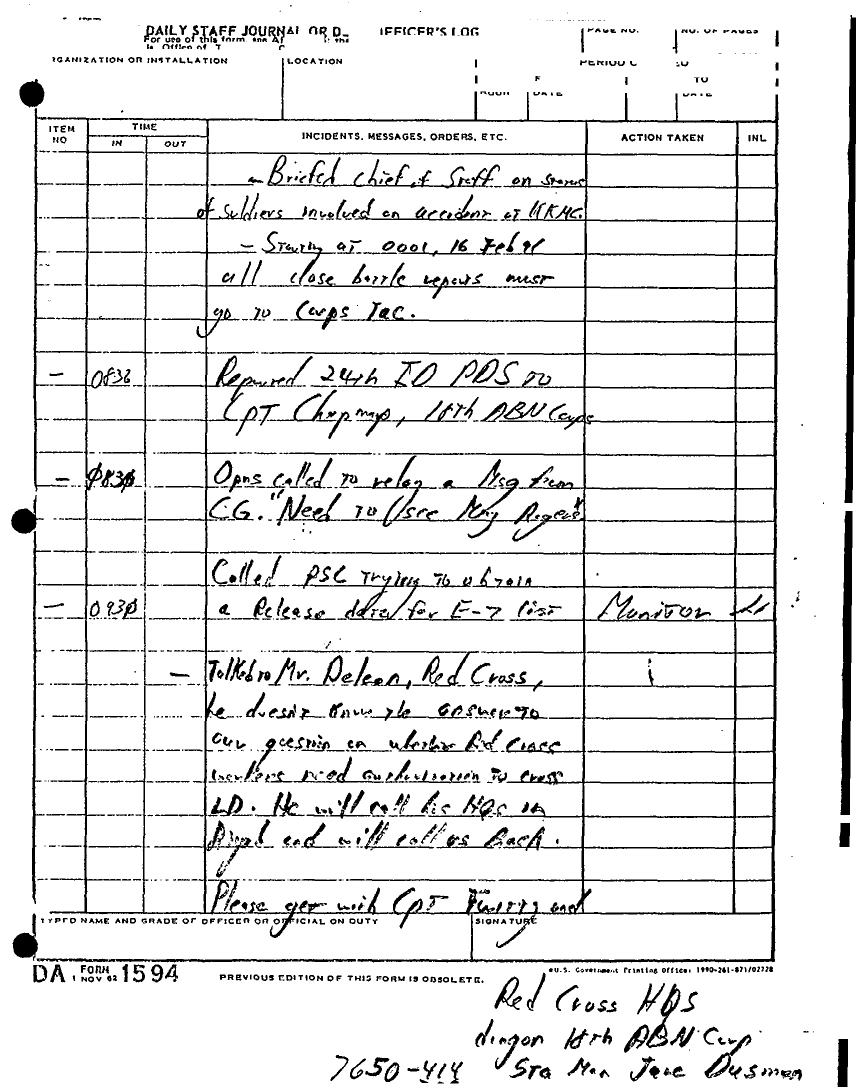 DAILY STAFF JOURNAL OR D OFFICER'S LOG
For use of this form, see
PAGE NO. NO. OF PAGES
ORGANIZATION OR INSTALLATION LOCATION PERIOD
TO
DATE DATE
ITEM NO TIME INCIDENTS, MESSAGES, ORDERS, ETC. ACTION TAKEN INL
IN OUT
- Briefed Chief of Staff on status
of soldiers involved on accident at KKMC.
- Starting at 0001, 16 Feb 91
all close battle reports must
go to Corps Tac.
- 0836 Reported 24th ID PDS to
CPT Chapman, 18th ABN Corps
- 0830 Opns called to relay a Msg from
C.G. "Need to see Maj Rogers"
Called PSC trying to obtain
- 0930 a Release date for E-7 list Monitor
- Talked to Mr. Deleon, Red Cross,
he doesn't know the answer to
our question on whether Red Cross
workers need authorization to cross
LD. He will call his HQs in
and will call us back.
Please get with CPT and
TYPED NAME AND GRADE OF OFFICER OR OFFICIAL ON DUTY SIGNATURE
DA FORM 1 NOV 62 1594 PREVIOUS EDITION OF THIS FORM IS OBSOLETE. U.S. Government Printing Office: 1990-261-871/02728
Red Cross HQS
18th ABN Corp
7650-414 Sta Man Jane